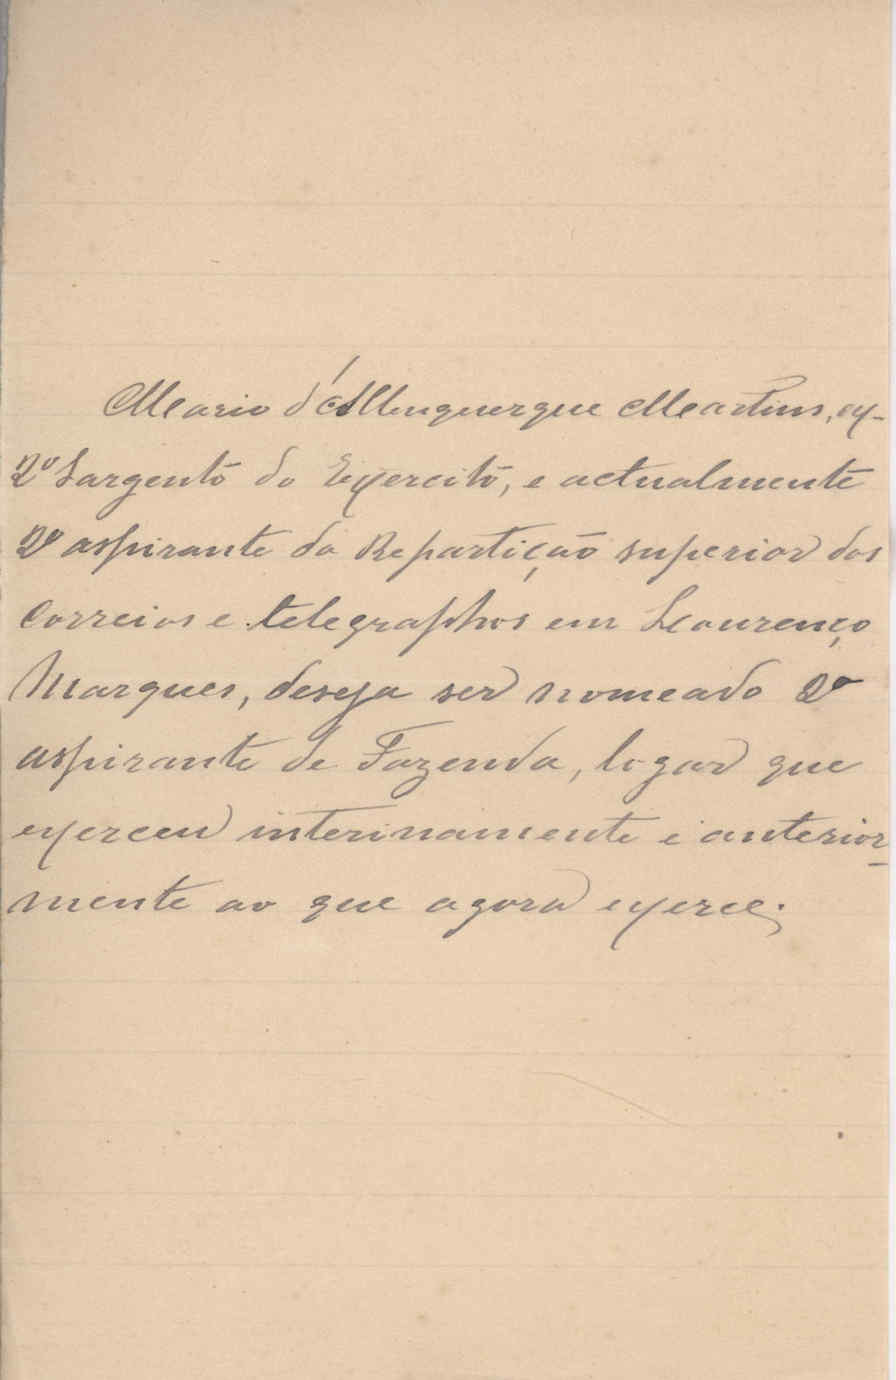 Mario d'Albuquerque Martins, ex-
2º Sargento do Exercito, e actualmente
2º aspirante da Repartição superior dos
correios e telegraphos em Lourenço
Marques, deseja ser nomeado 2º
aspirante de Fazenda, logar que
exerceu interinamente e anterior-
mente ao que agora exerce.